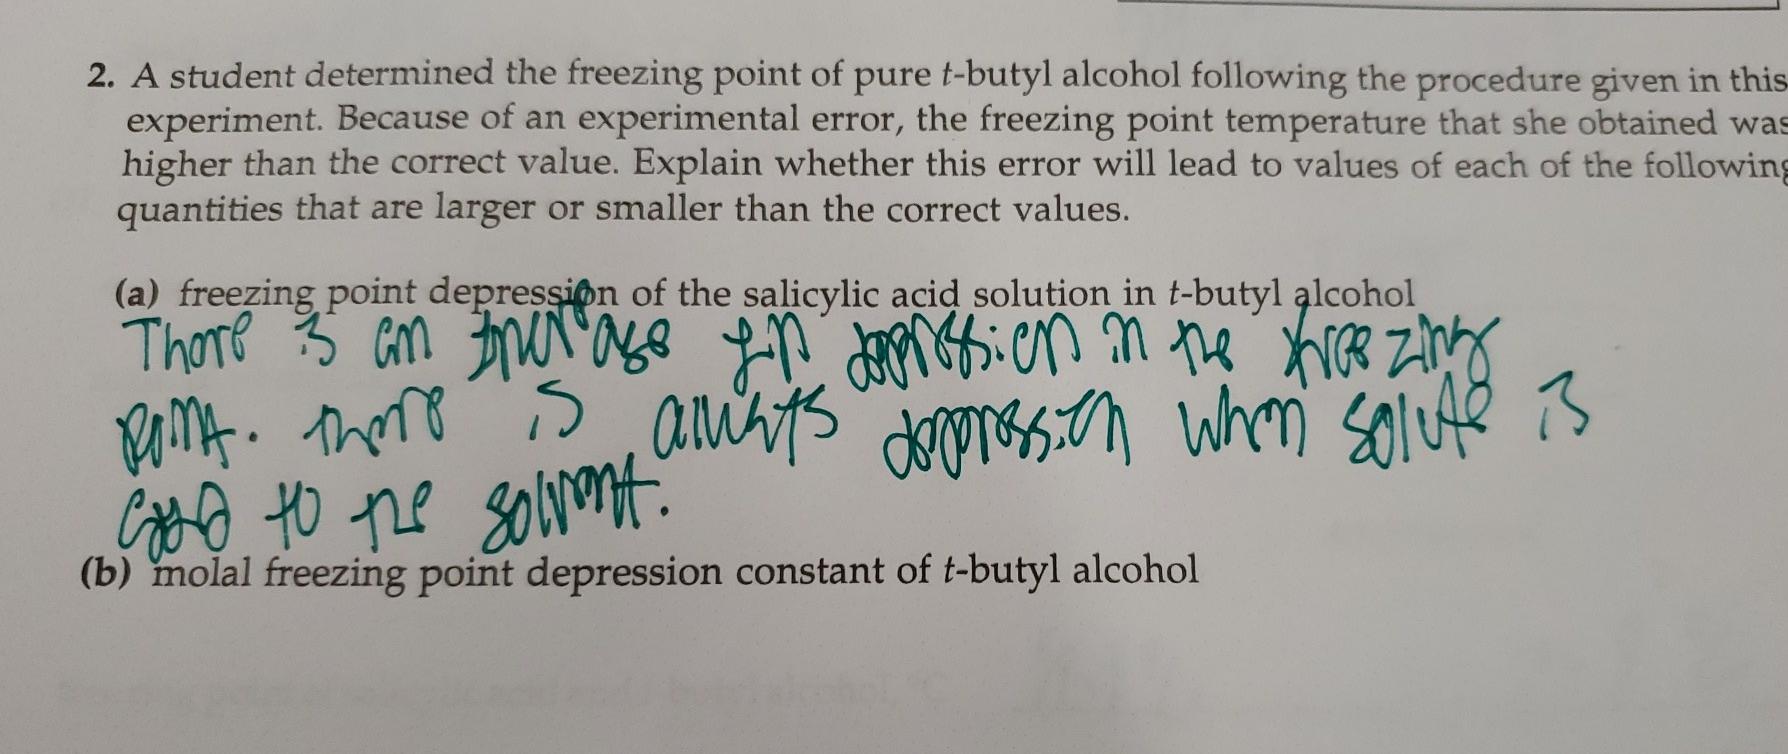 2. A student determined the freezing point of pure t-butyl alcohol following the procedure given in this
experiment. Because of an experimental error, the freezing point temperature that she obtained was
higher than the correct value. Explain whether this error will lead to values of each of the following
quantities that are larger or smaller than the correct values.
(a) freezing point depression of the salicylic acid solution in t-butyl alcohol
There is an increase in depression in the freezing
point. there is always depression when solute is
to the solvent.
(b) molal freezing point depression constant of t-butyl alcohol